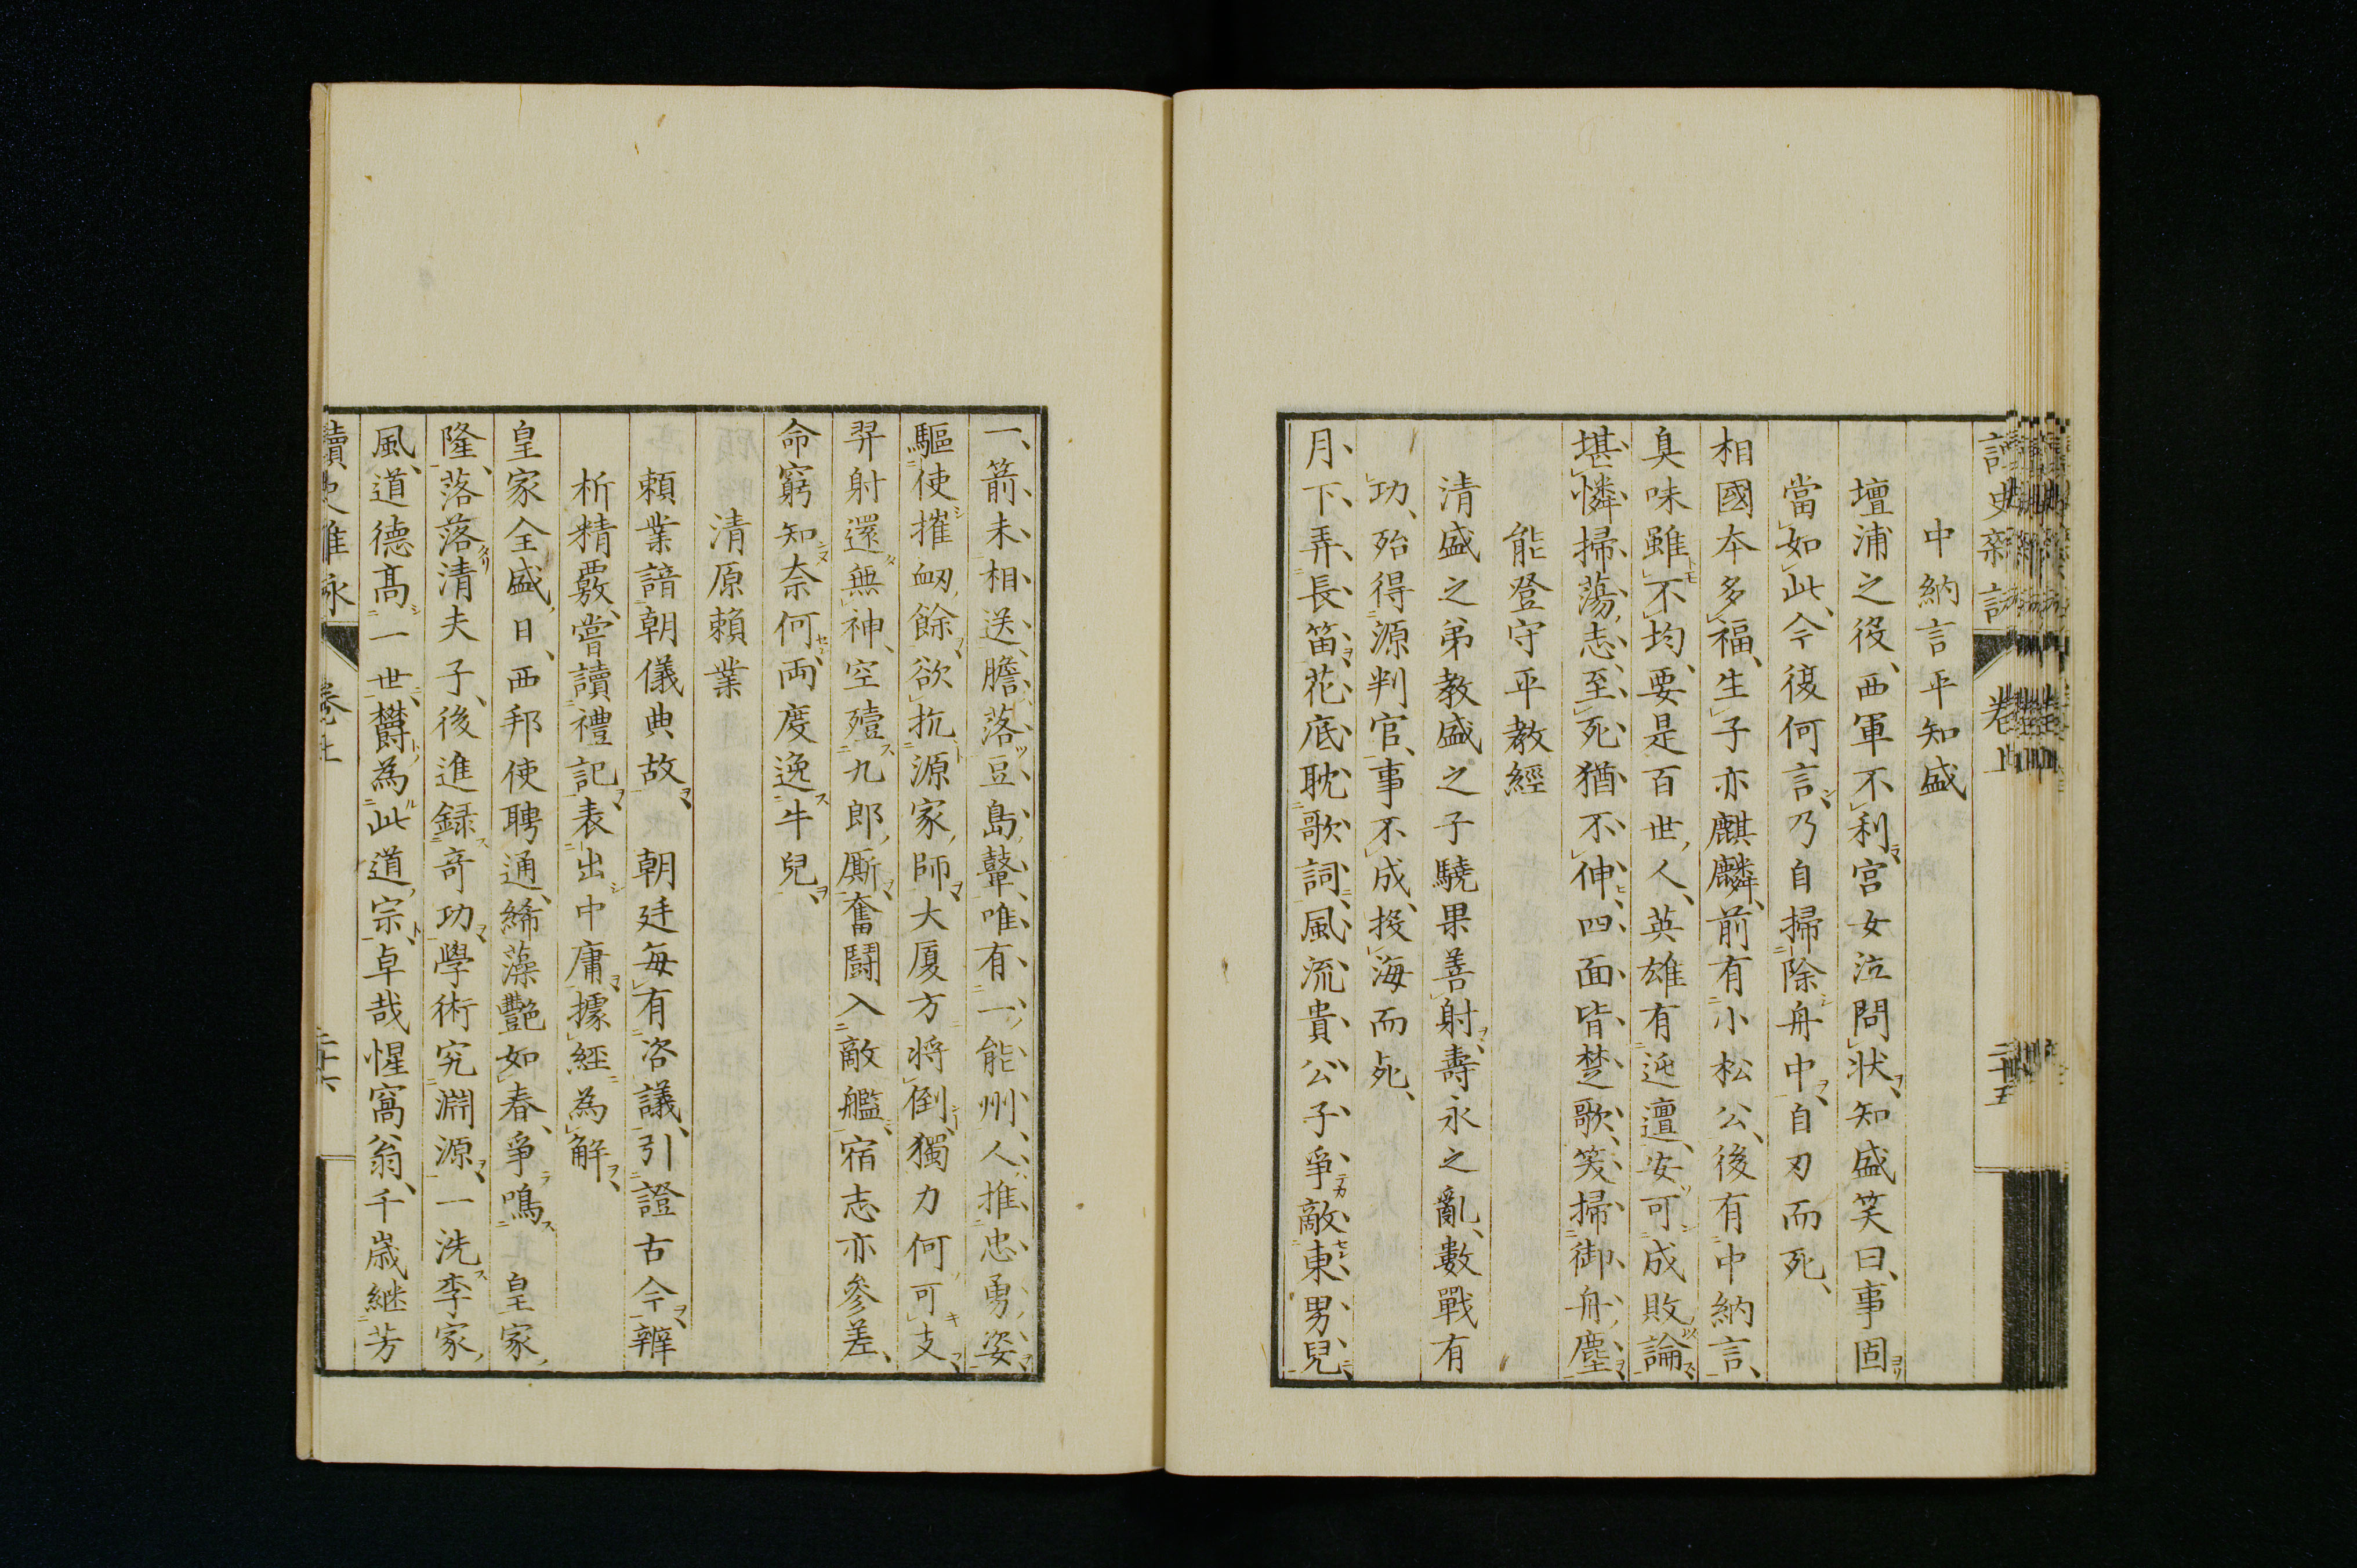 中納言平知盛
壇浦之役、西軍不利宮女泣問狀知盛笑曰、事固
當如此、今復何言、乃自掃除舟中、自刃而死、
相國本多福、生子亦麒麟、前有小松公、後有中納言、
臭味雖不均、要是百世人、英雄有迍邅、安可成敗論
堪憐掃蕩志、至死猶不伸、四面皆楚歌、笑掃御舟塵、
能登守平教經
清盛之弟教盛之子驍果善射、壽永之亂、數戰有
功、殆得源判官、事不成、投海而死、
月下弄長笛、花底耽歌詞、風流貴公子爭敵東男兒、
一箭未相送、膽落豆島鼙、唯有一能州人、推忠勇姿、
驅使摧衂餘、欲抗源家師、大廈方將倒、獨力何可支、
羿射還無神、空殪九郎厮、奮鬪入敵艦、宿志亦參差、
命窮知奈何、兩度逸牛兒、
清原賴業
賴業諳朝儀典故、朝廷每有咨議、引證古今、辨
析精覈、嘗讀禮記、表出中庸、據經為解、
皇家全盛日、西邦使聘通、絺藻艷如春、爭鳴皇家
隆、落落清夫子、後進録竒功、學術究淵源、一洗李家
風、道德髙一世、欝為此道宗、卓哉惺窩翁、千歲継芳
卷上
二十五